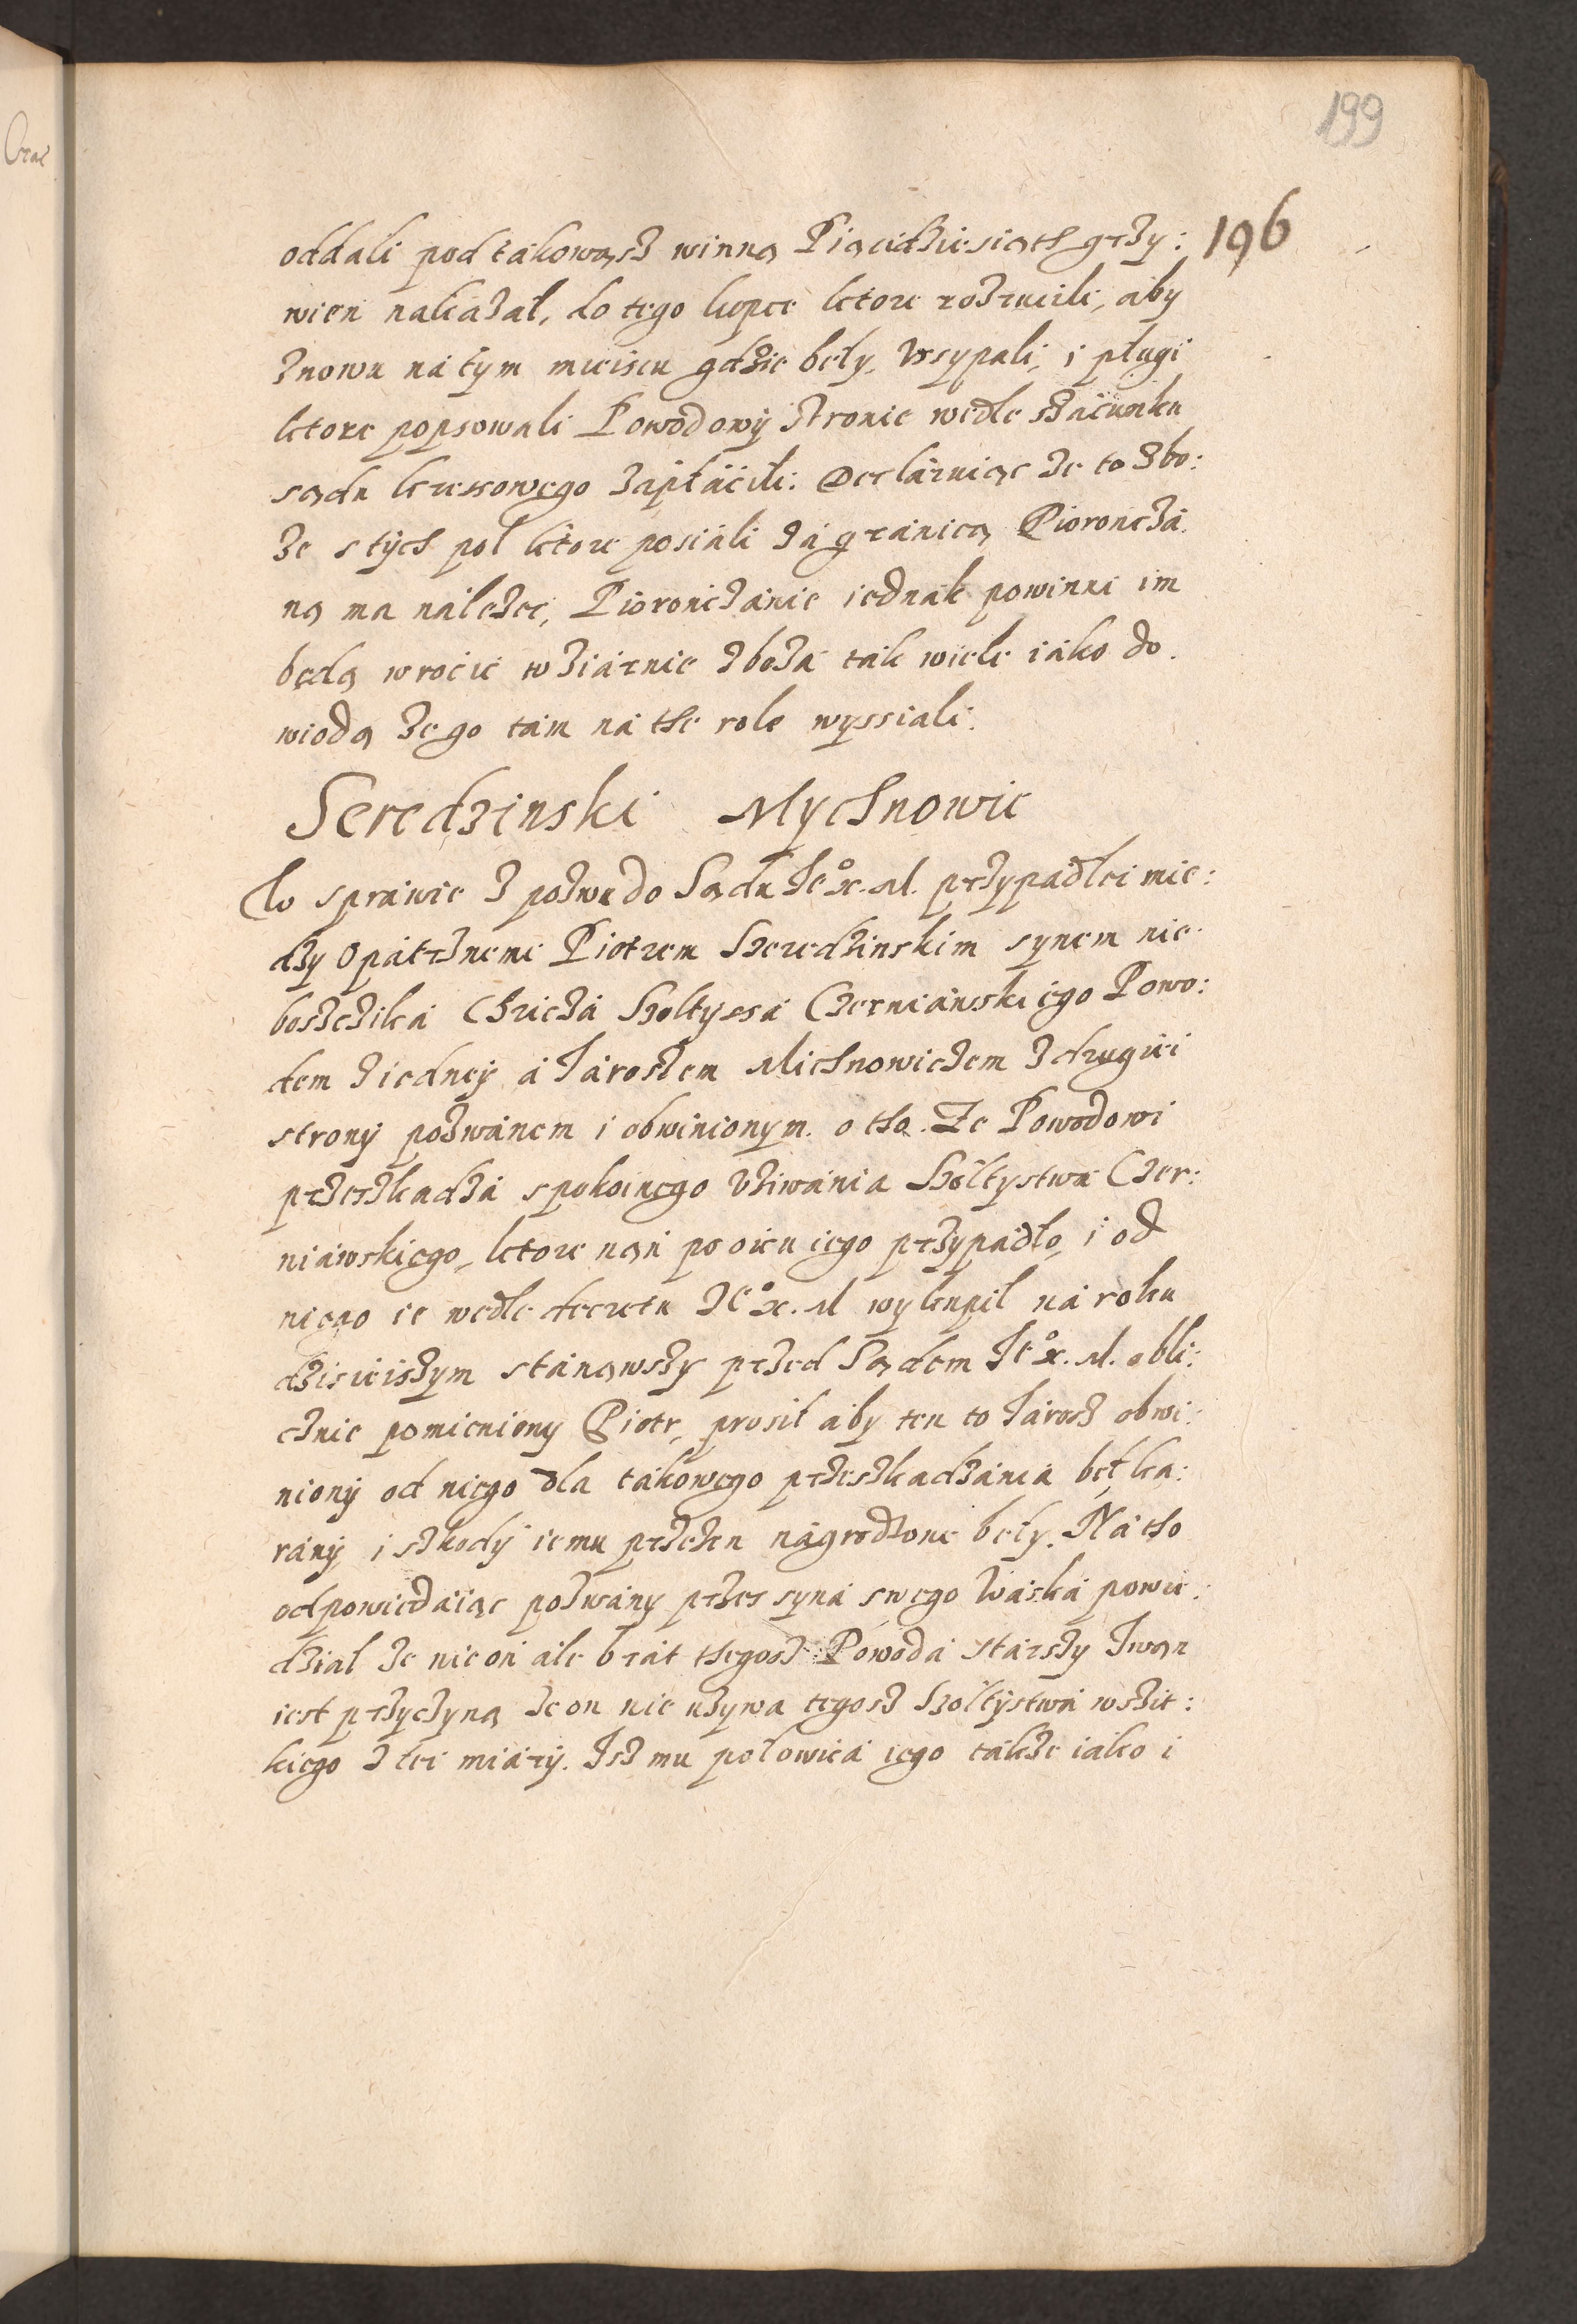 199
196
oddali pod takowąsz winną Piącidziesiąth grzy:
wien nakazał, do tego kopce ktore rozrucili, aby
znowu na tym mieiscu gdzie beły, Vsypali, i pługi
ktore popsowali Powodowÿ stronie wedle szacunku
sądu kresowego zapłacili: Declaruiąc że to zbo:
że s tÿch pol ktore posiali za granicą Pioroncza
ną ma należec, Pioronczanie iednak powinni im
będą wrocic w ziarnie zboża tak wiele iako do
wiodą że go tam na the role wyssiali.
Seredzinski Mychnowic
W sprawie z pozwu do Sądu Je° x. M. przypadłei mie:
dzy Opatrznem Piotrem Szeredzinskim synem nie
boszczika Chricza Szoltyssa Czerniawskiego Powo:
dem z iedneÿ a Jaroszem Michnowiczem z drugiei
stronÿ pozwanem i obwinionym. o tho. Że Powodowi
przeszkadza spokoinego Vżiwania Szołtystwa Czer:
niawskiego, ktore nań po oicu iego przypadło, i od
niego ie wedle decretu Je° x. M wykupił na roku
dzisieiszym stanąwszy przed Sądem Je° x. M. obli:
cznie pomieniony Piotr, prosił aby ten to Jarosz obwi:
nionÿ od niego dla takowego przeszkadzania bęł ka:
ranÿ i szkodÿ iemu przezen nagrodzone beły. Na tho
odpowiedaiąc pozwany przez syna swego Waska powie:
dział że nie on ale brat thegosz Powoda starszy Iwan
iest przyczyną że on nie używa tegosz Szołtÿstwa wszit:
kiego z tei miarÿ. Jsz mu połowica iego także iako i